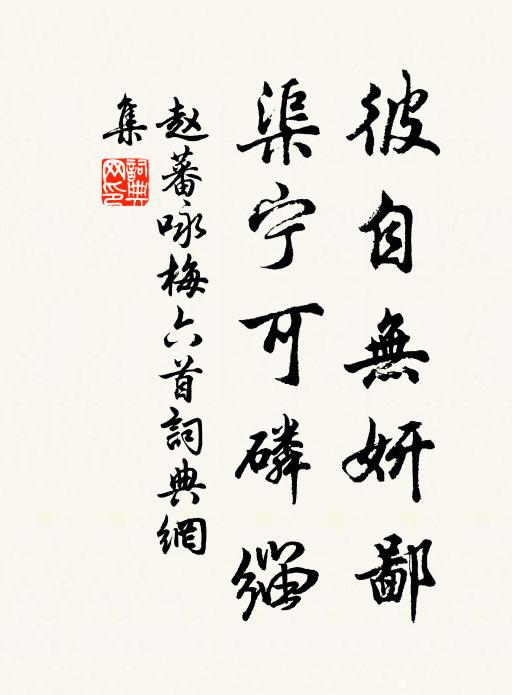 彼自無妍鄙
渠宁可磷緇
赵蕃咏梅六首詞典網
集
詞典网印